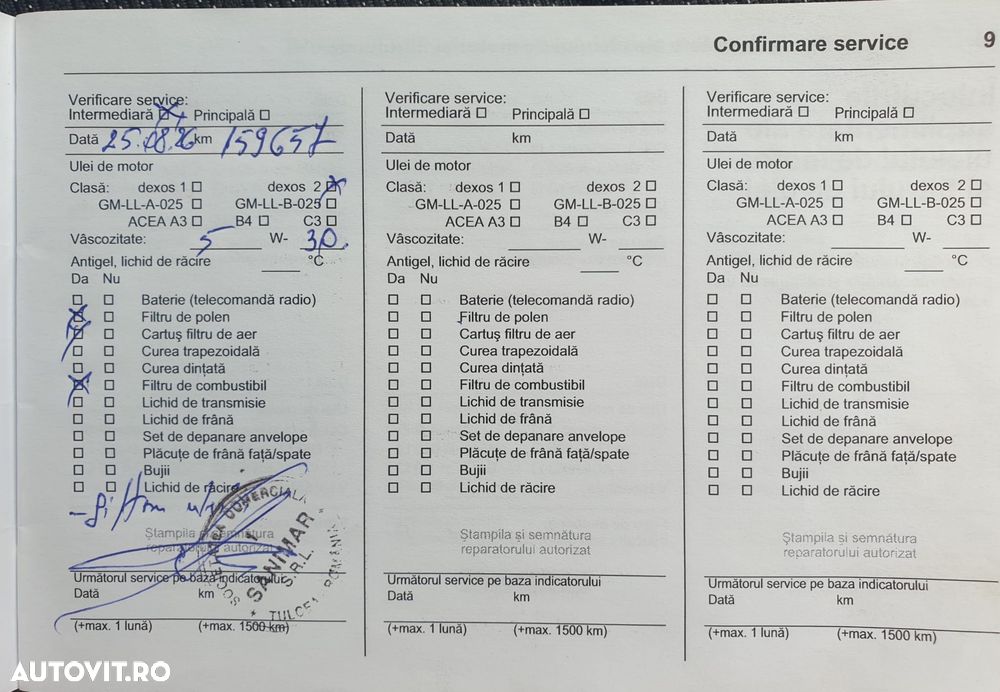 Confirmare service 9
Verificare service:
Intermediară ☒ Principală □
Dată 25.08.26 km 159657
Ulei de motor
Clasă: dexos 1 □ dexos 2 ☒
GM-LL-A-025 □ GM-LL-B-025 □
ACEA A3 □ B4 □ C3 □
Vâscozitate: 5 W- 30
Antigel, lichid de răcire °C
Da Nu
□ □ Baterie (telecomandă radio)
☒ □ Filtru de polen
☒ □ Cartuş filtru de aer
□ □ Curea trapezoidală
□ □ Curea dinţată
☒ □ Filtru de combustibil
□ □ Lichid de transmisie
□ □ Lichid de frână
□ □ Set de depanare anvelope
□ □ Plăcuţe de frână faţă/spate
□ □ Bujii
□ □ Lichid de răcire
Ştampila şi semnătura
reparatorului autorizat
SOCIETATEA COMERCIALA
SANMAR
S.R.L.
TULCEA - ROMANIA
Următorul service pe baza indicatorului
Dată km
(+max. 1 lună) (+max. 1500 km)
Verificare service:
Intermediară □ Principală □
Dată km
Ulei de motor
Clasă: dexos 1 □ dexos 2 □
GM-LL-A-025 □ GM-LL-B-025 □
ACEA A3 □ B4 □ C3 □
Vâscozitate: W-
Antigel, lichid de răcire °C
Da Nu
□ □ Baterie (telecomandă radio)
□ □ Filtru de polen
□ □ Cartuş filtru de aer
□ □ Curea trapezoidală
□ □ Curea dinţată
□ □ Filtru de combustibil
□ □ Lichid de transmisie
□ □ Lichid de frână
□ □ Set de depanare anvelope
□ □ Plăcuţe de frână faţă/spate
□ □ Bujii
□ □ Lichid de răcire
Ştampila şi semnătura
reparatorului autorizat
Următorul service pe baza indicatorului
Dată km
(+max. 1 lună) (+max. 1500 km)
Verificare service:
Intermediară □ Principală □
Dată km
Ulei de motor
Clasă: dexos 1 □ dexos 2 □
GM-LL-A-025 □ GM-LL-B-025 □
ACEA A3 □ B4 □ C3 □
Vâscozitate: W-
Antigel, lichid de răcire °C
Da Nu
□ □ Baterie (telecomandă radio)
□ □ Filtru de polen
□ □ Cartuş filtru de aer
□ □ Curea trapezoidală
□ □ Curea dinţată
□ □ Filtru de combustibil
□ □ Lichid de transmisie
□ □ Lichid de frână
□ □ Set de depanare anvelope
□ □ Plăcuţe de frână faţă/spate
□ □ Bujii
□ □ Lichid de răcire
Ştampila şi semnătura
reparatorului autorizat
Următorul service pe baza indicatorului
Dată km
(+max. 1 lună) (+max. 1500 km)
AUTOVIT.RO